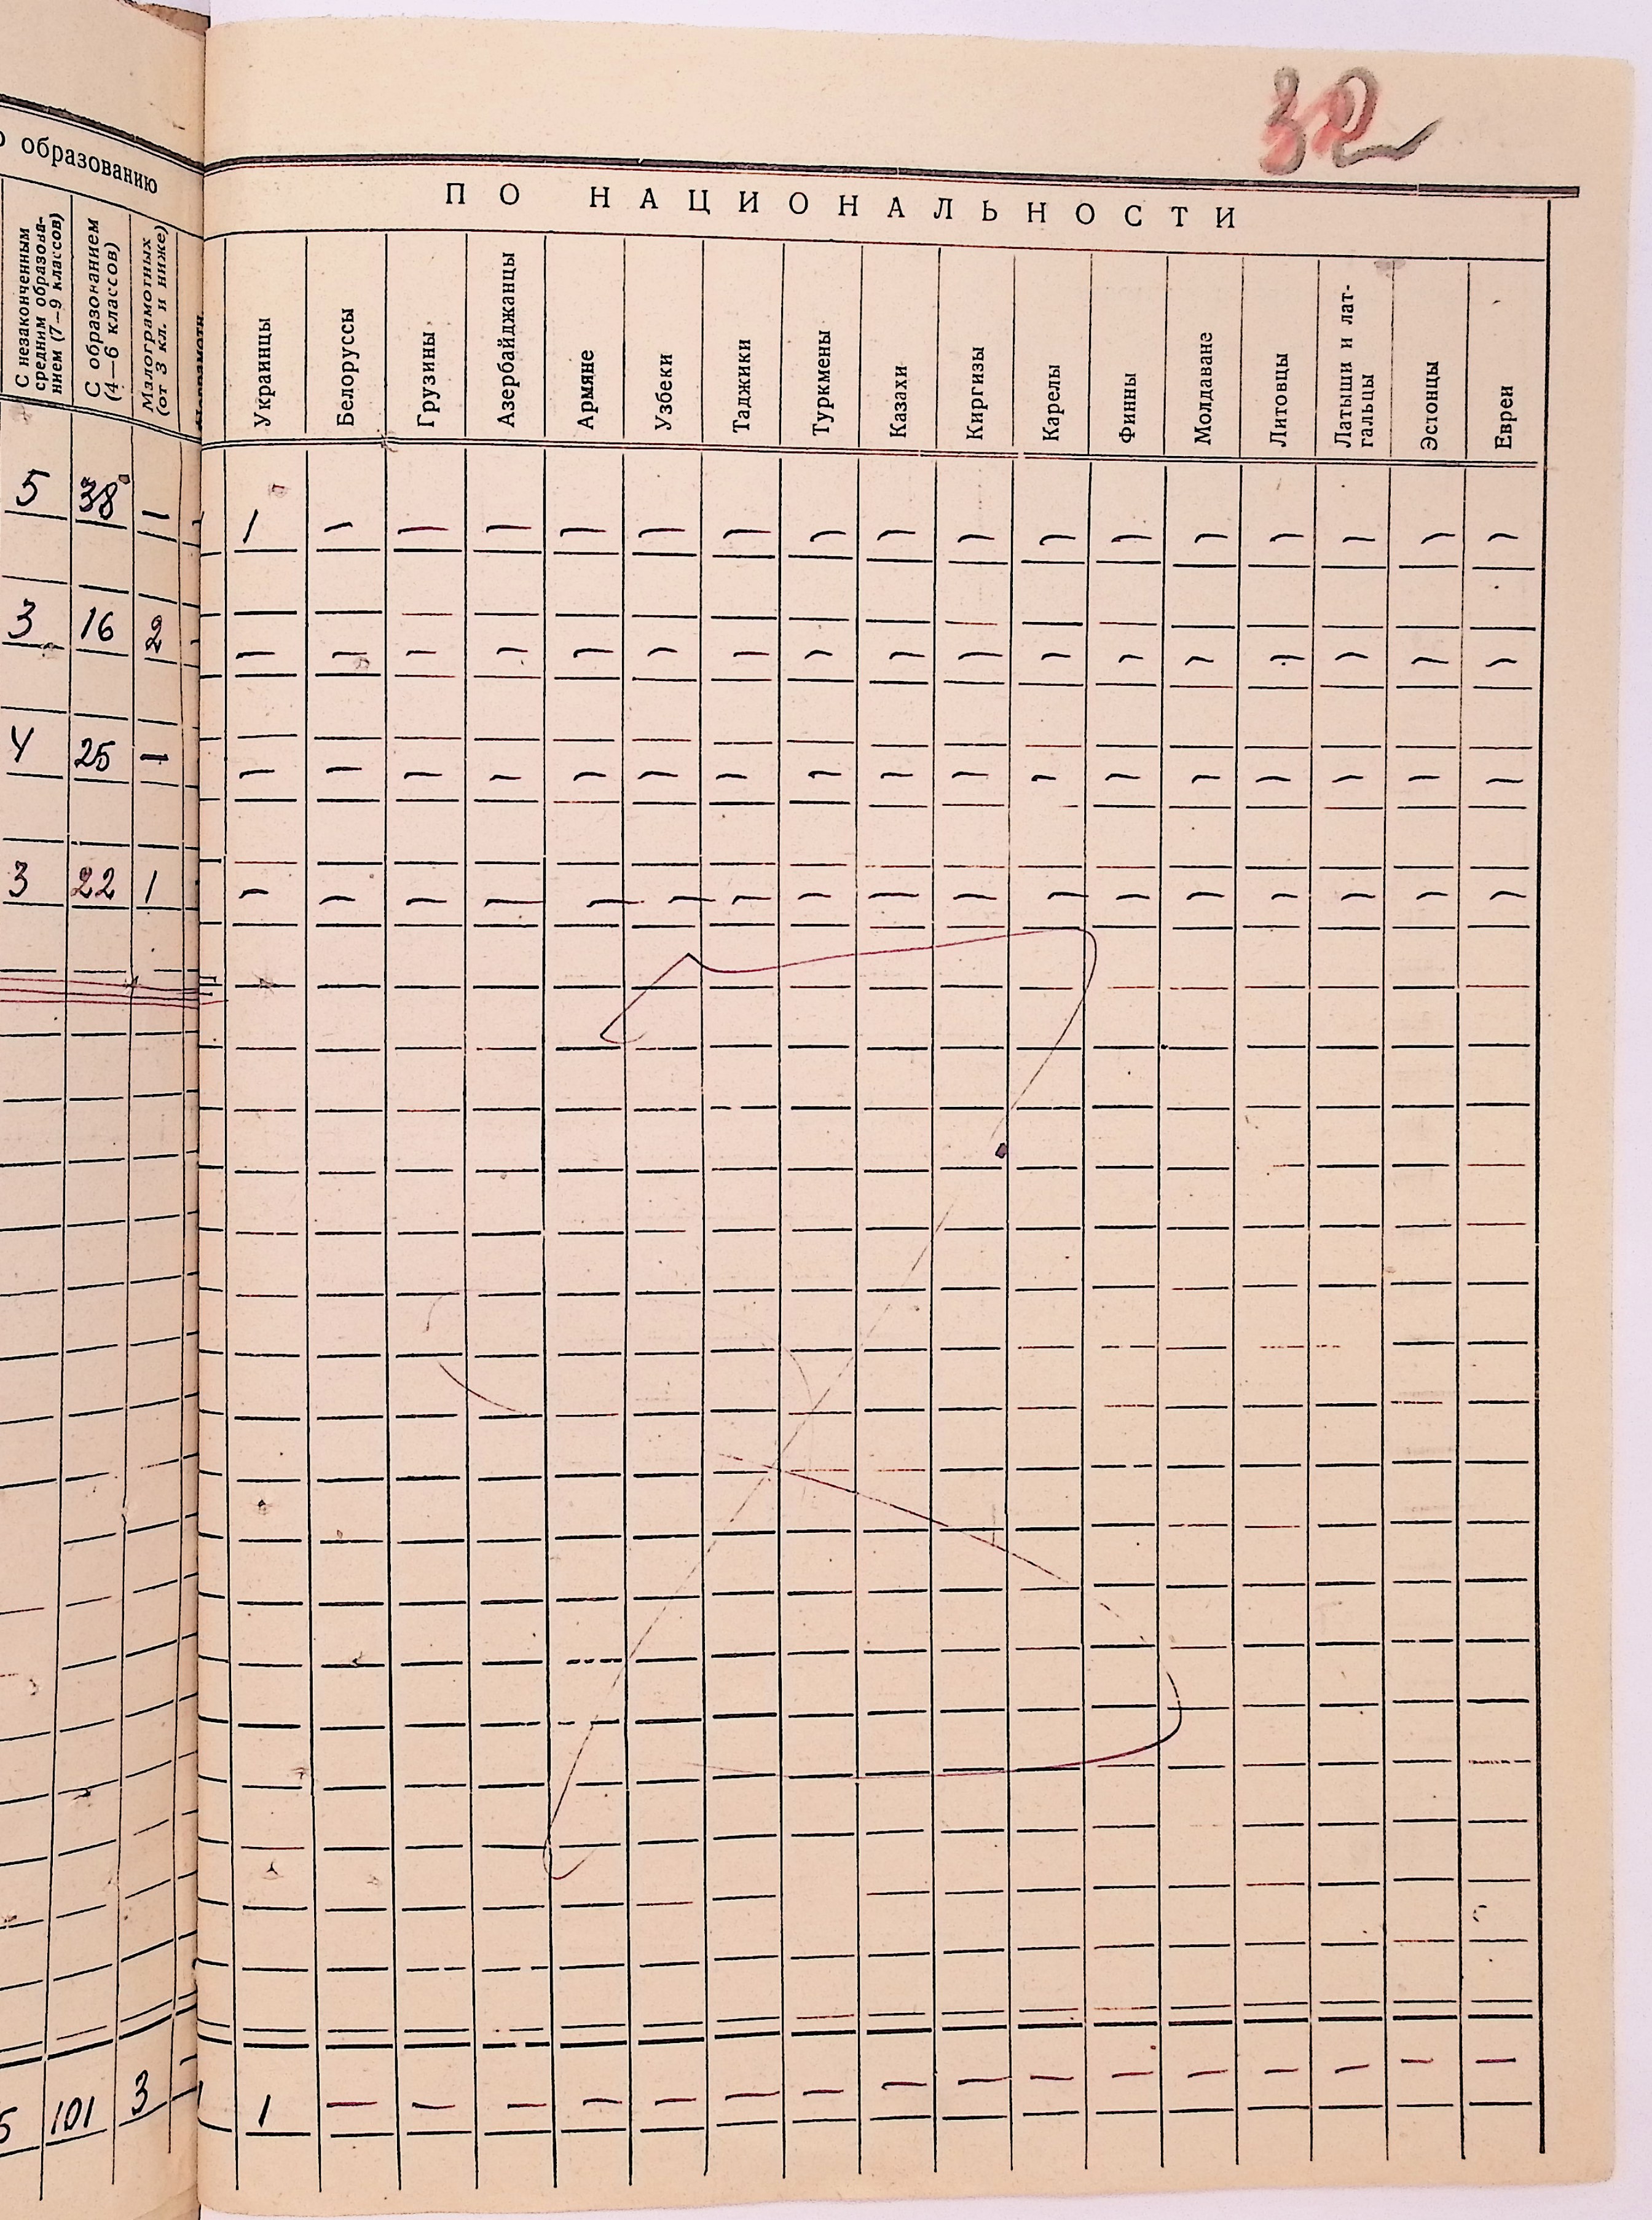 32
образованию
С незаконченным средним образова-нием (7—9 классов)
С образованием (4—6 классов)
Малограмотных (от 3 кл. и ниже)
ПО НАЦИОНАЛЬНОСТИ
Украинцы
Белоруссы
Грузины
Азербайджанцы
Армяне
Узбеки
Таджики
Туркмены
Казахи
Киргизы
Карелы
Финны
Молдаване
Литовцы
Латыши и лат-гальцы
Эстонцы
Евреи
5 38 — 1 — — — — — — — — — — — — — — — —
3 16 2 — — — — — — — — — — — — — — — — —
4 25 — — — — — — — — — — — — — — — — — —
3 22 1 — — — — — — — — — — — — — — — — —
5 101 3 1 — — — — — — — — — — — — — — — —